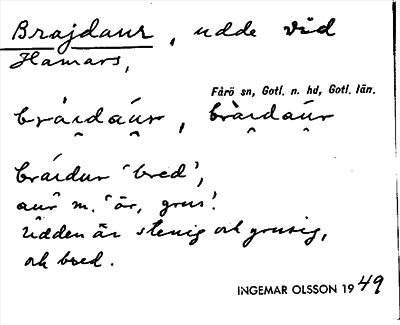 Brajdaur, udde vid
Hamars,
Fårö sn, Gotl. n. hd, Gotl. län.
brá̯ɪdau̯r, brà̯ɪdau̯r
bráɪdur 'bred',
aur m. 'ör, grus'.
Udden är stenig och grusig,
och bred.
INGEMAR OLSSON 1949